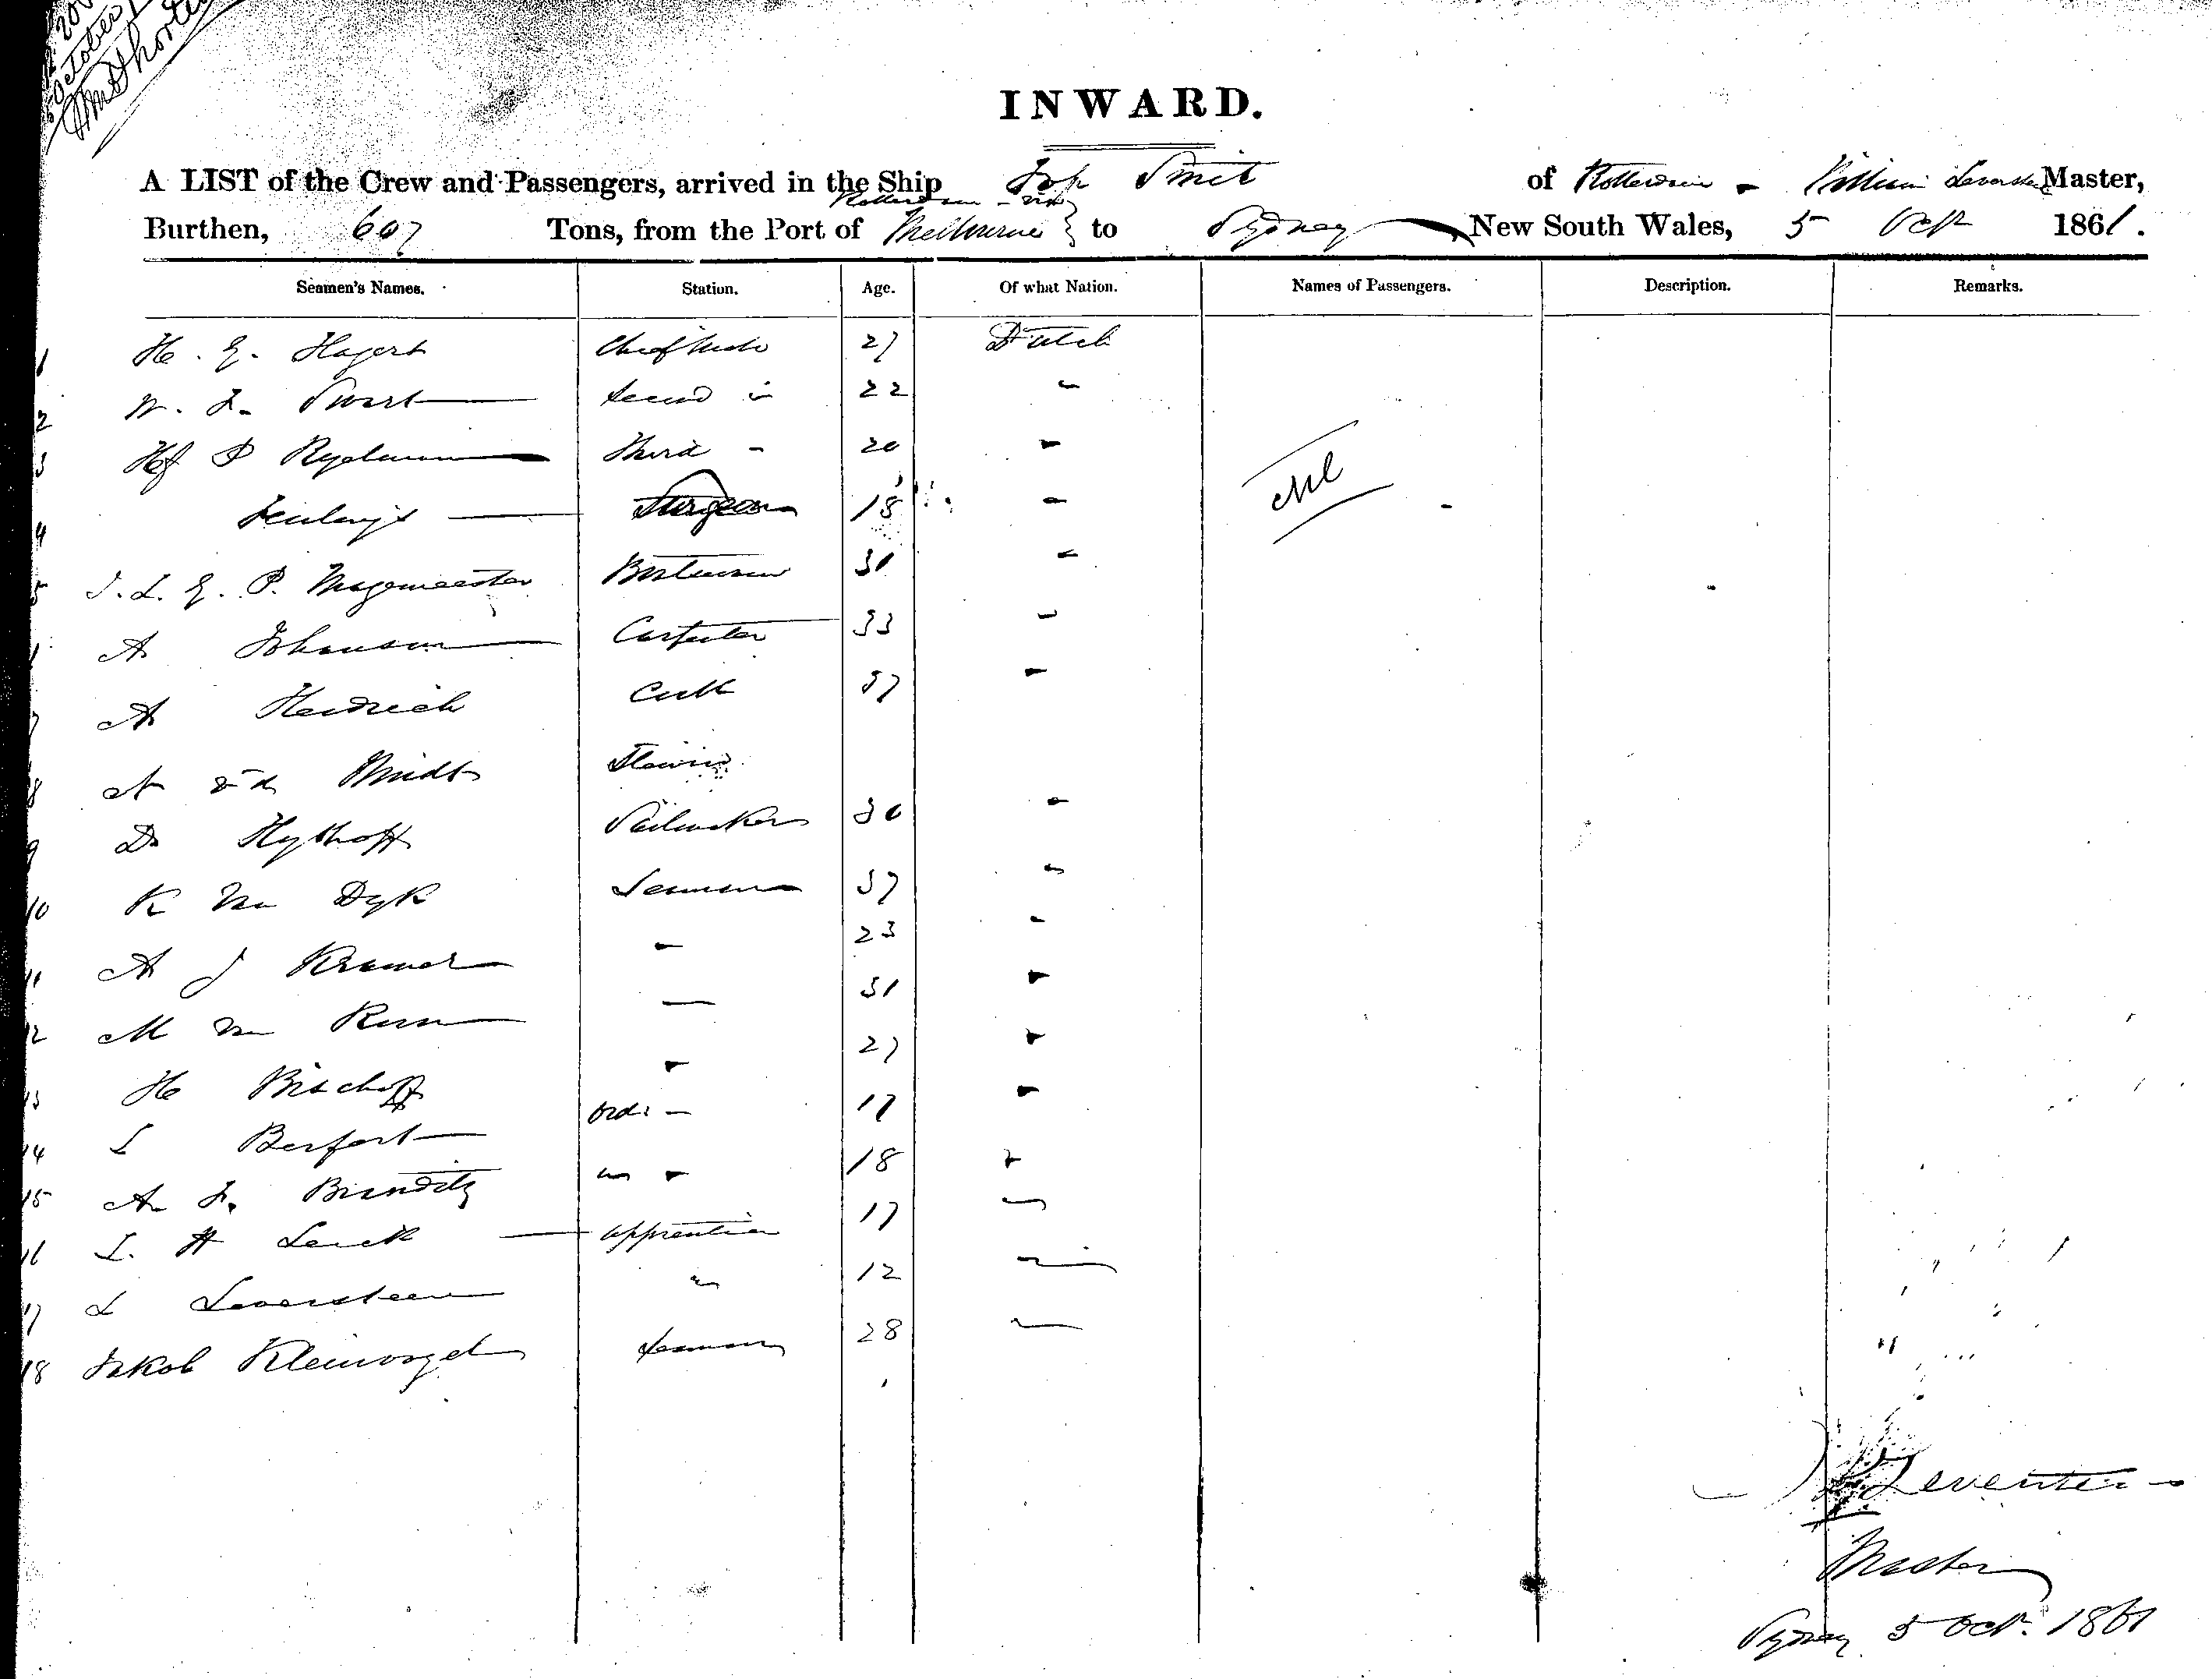 October
INWARD.
A LIST of the Crew and Passengers, arrived in the Ship Smit of Rotterdam - William Master,
Rotterdam - via
Burthen, 607 Tons, from the Port of Melbourne } to Sydney, New South Wales, 5 Oct 1861.
Seamen's Names. Station. Age. Of what Nation. Names of Passengers. Description. Remarks.
1 H. E. Hagert Chief Mate 27 Dutch
2 W. F. Swart Second " 22 "
3 P Rydman Third - 20 "
4 Surgeon 18 "
5 J. L. E. P. Magemeester Boatswain 31 "
A Johanson Carpenter 33 "
7 A Heidrich Cook 37 "
8 A v d Steward
9 D Hythoff Sailmaker 36 "
10 K Van Dyk Seaman 37 "
11 A J Kramer - 23 "
12 M van — 31 "
13 H Bischoff - 27 "
14 L Berfort Ord. - 17 "
15 A. F. " - 18 "
16 L. H Apprentice 17 "
17 L Leversteen " 12 "
18 Jakob Kleinvogel Seaman 28 "
Nil
Master
Sydney 5 Oct. 1861